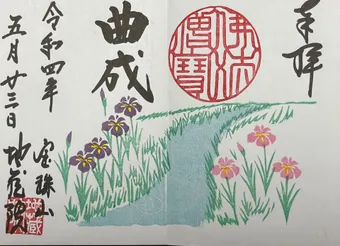 奉拝
佛法僧寶
曲成
令和四年
五月廿三日
宝珠山
地蔵院